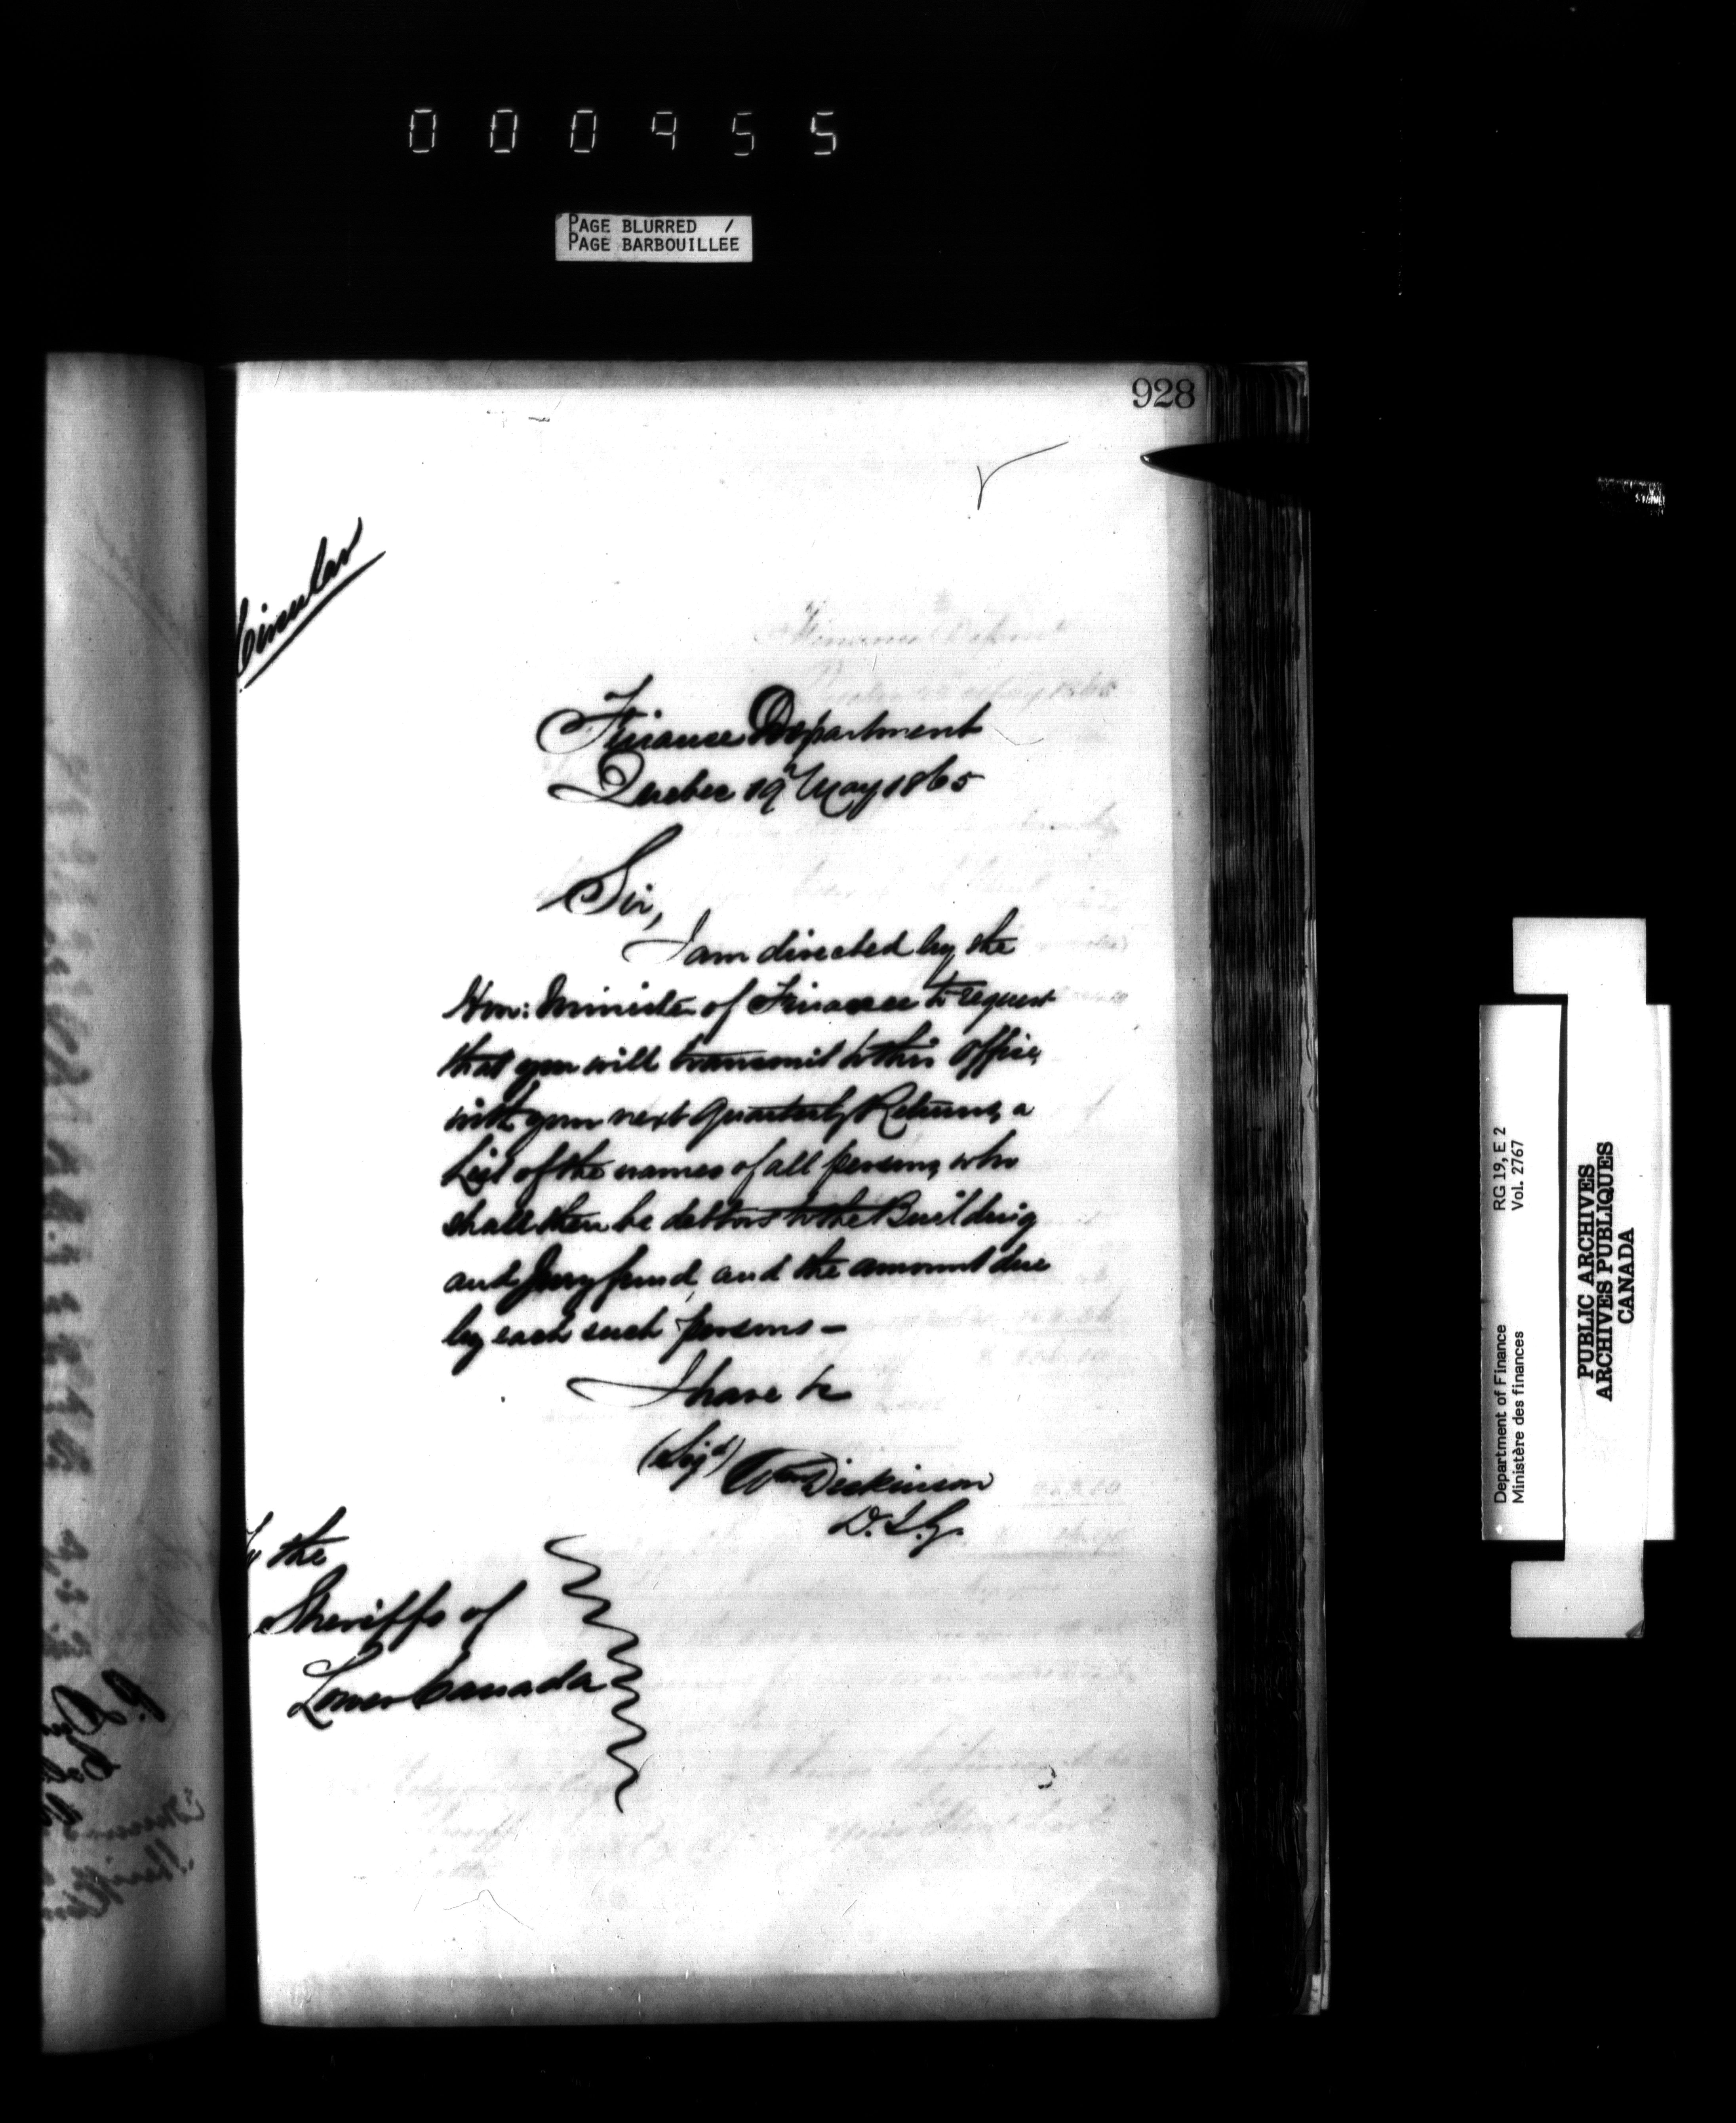 000955
PAGE BLURRED /
PAGE BARBOUILLEE
928
Circular
Finance Department
Quebec 19th May 1865
Sir,
I am directed by the
Hon: Minister of Finance to request
that you will transmit to this Office,
with your next Quarterly Returns, a
List of the names of all persons, who
shall then be debtors to the Building
and Jury fund, and the amount due
by each such persons —
I have &c
(Sigd) Wm Dickinson
D. I. G.
To the
Sheriffs of
Lower Canada
Department of Finance RG 19, E 2
Ministère des finances Vol. 2767
PUBLIC ARCHIVES
ARCHIVES PUBLIQUES
CANADA